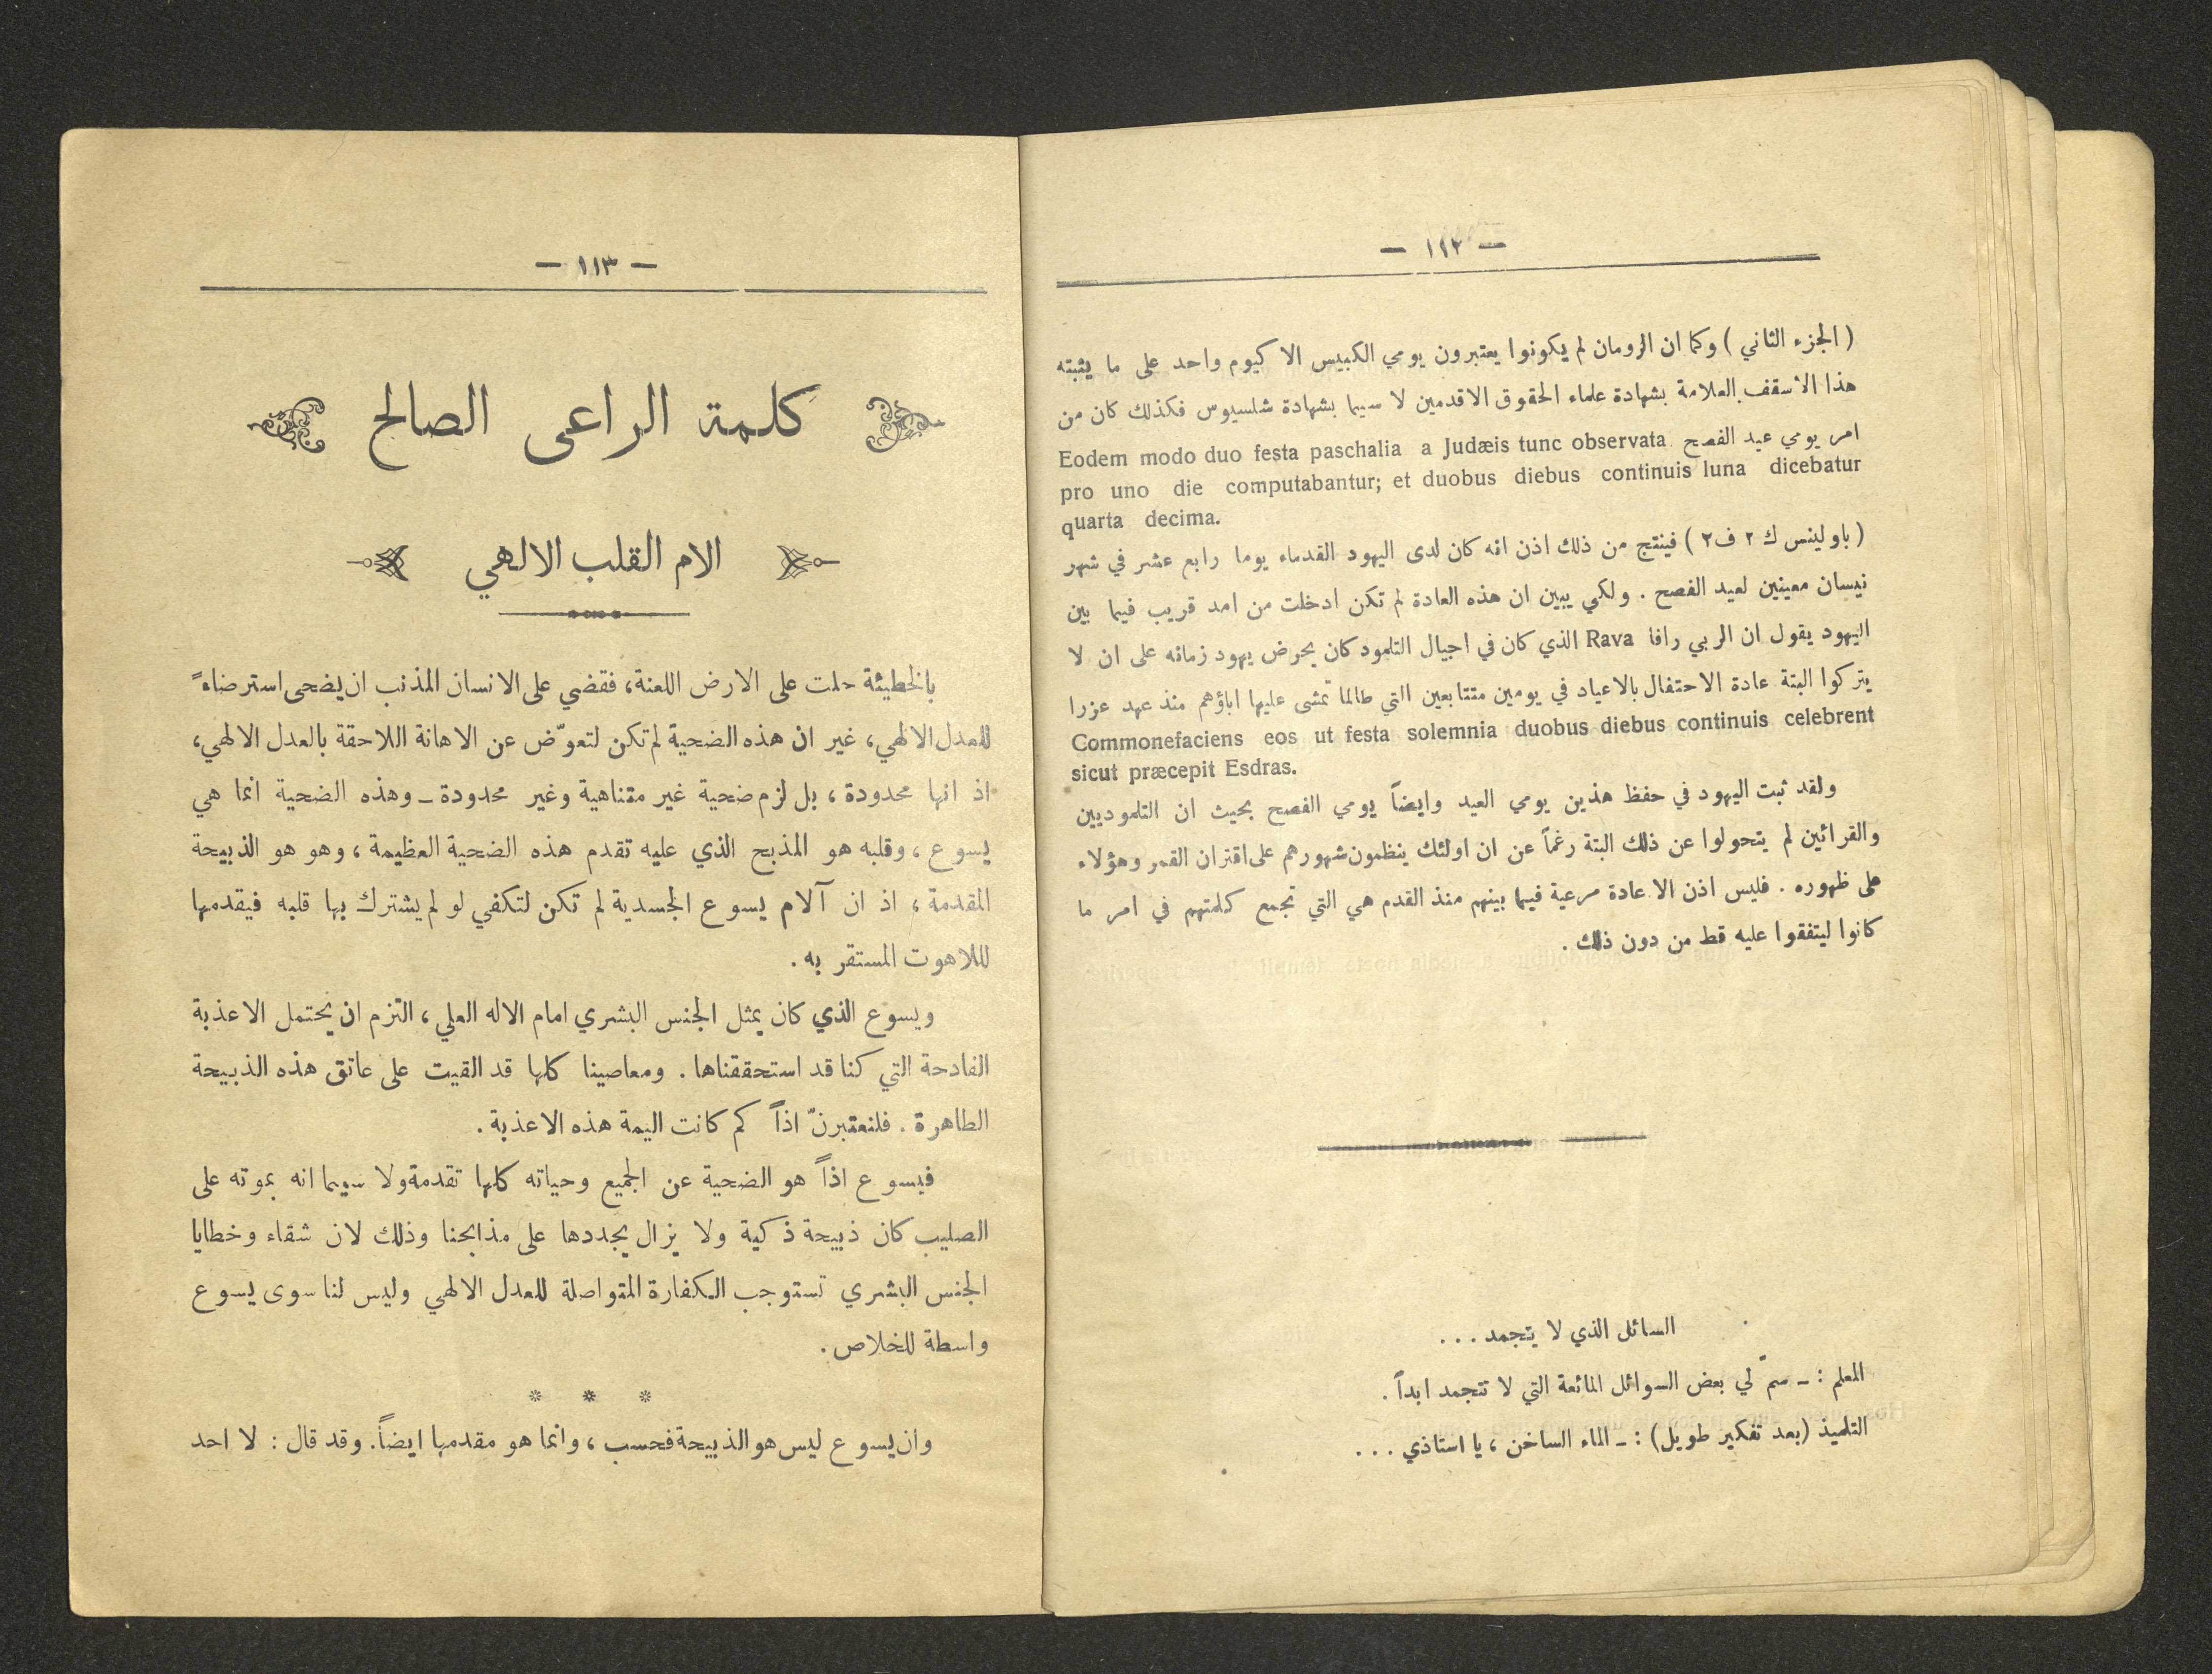 — ١١٢ —
( الجزء الثاني ) وكما ان الرومان لم يكونوا يعتبرون يومي الكبيس الا كيوم واحد على ما يثبته
هذا الأسقف العلامة بشهادة علماء الحقوق الاقدمين لا سيما بشهادة شلسيوس فكذلك كان من
امر يومي عيد الفصح Eodem modo duo festa paschalia a Judæis tunc observata
pro uno die computabantur; et duobus diebus continuis luna dicebatur
quarta decima.
( باولينس ك ٢ ف ٢ ) فينتج من ذلك اذن انه كان لدى اليهود القدماء يوما رابع عشر في شهر
نيسان معينين لعيد الفصح . ولكي يبين ان هذه العادة لم تكن ادخلت من امد قريب فيما بين
اليهود يقول ان الربي رافا Rava الذي كان في اجيال التلمود كان يحرض يهود زمانه على ان لا
يتركوا البتة عادة الاحتفال بالاعياد في يومين متتابعين التي طالما تمشى عليها اباؤهم منذ عهد عزرا
Commonefaciens eos ut festa solemnia duobus diebus continuis celebrent
sicut præcepit Esdras.
ولقد ثبت اليهود في حفظ هذين يومي العيد وايضاً يومي الفصح بحيث ان التلموديين
والقرائين لم يتحولوا عن ذلك البتة رغماً عن ان اولئك ينظمون شهورهم على اقتران القمر وهؤلاء
على ظهوره . فليس اذن الا عادة مرعية فيما بينهم منذ القدم هي التي تجمع كلمتهم في امر ما
كانوا ليتفقوا عليه قط من دون ذلك .
السائل الذي لا يتجمد . . .
المعلم : ـ سمّ لي بعض السوائل المائعة التي لا تتجمد ابداً .
التلميذ (بعد تفكير طويل) : ـ الماء الساخن ، يا استاذي . . .
— ١١٣ —
كلمة الراعى الصالح
الام القلب الالهي
بالخطيئة حلت على الارض اللعنة، فقضي على الانسان المذنب ان يضحى استرضاءً
للعدل الالهي، غير ان هذه الضحية لم تكن لتعوّض عن الاهانة اللاحقة بالعدل الالهي،
اذ انها محدودة ، بل لزم ضحية غير متناهية وغير محدودة ـ وهذه الضحية انما هي
يسوع ، وقلبه هو المذبح الذي عليه تقدم هذه الضحية العظيمة ، وهو هو الذبيحة
المقدمة ، اذ ان آلام يسوع الجسدية لم تكن لتكفي لو لم يشترك بها قلبه فيقدمها
للاهوت المستقر به .
ويسوع الذي كان يمثل الجنس البشري امام الاله العلي ، التزم ان يحتمل الاعذبة
الفادحة التي كنا قد استحققناها . ومعاصينا كلها قد القيت على عاتق هذه الذبيحة
الطاهرة . فلنعتبرنّ اذاً كم كانت اليمة هذه الاعذبة .
فيسوع اذاً هو الضحية عن الجميع وحياته كلها تقدمة ولا سيما انه بموته على
الصليب كان ذبيحة ذكية ولا يزال يجددها على مذابحنا وذلك لان شقاء وخطايا
الجنس البشري تستوجب الكفارة المتواصلة للعدل الالهي وليس لنا سوى يسوع
واسطة للخلاص .
* * *
وان يسوع ليس هو الذبيحة فحسب ، وانما هو مقدمها ايضاً. وقد قال : لا احد